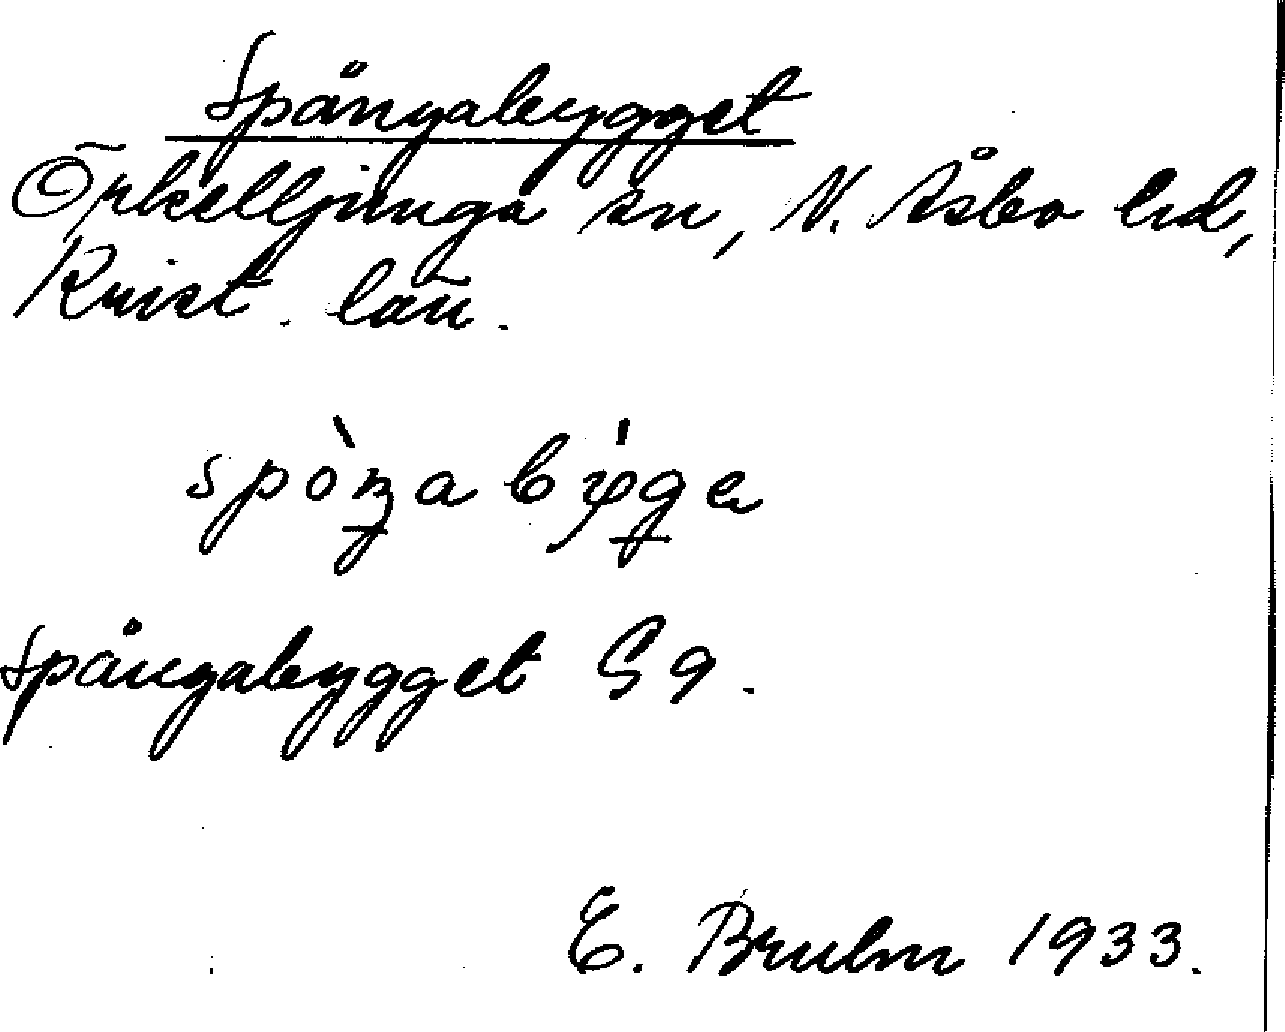 Spångabygget
Örkelljunga sn, N. Åsbo hd,
Krist. län.
Spångabygget Gg.
E. Bruhn 1933.